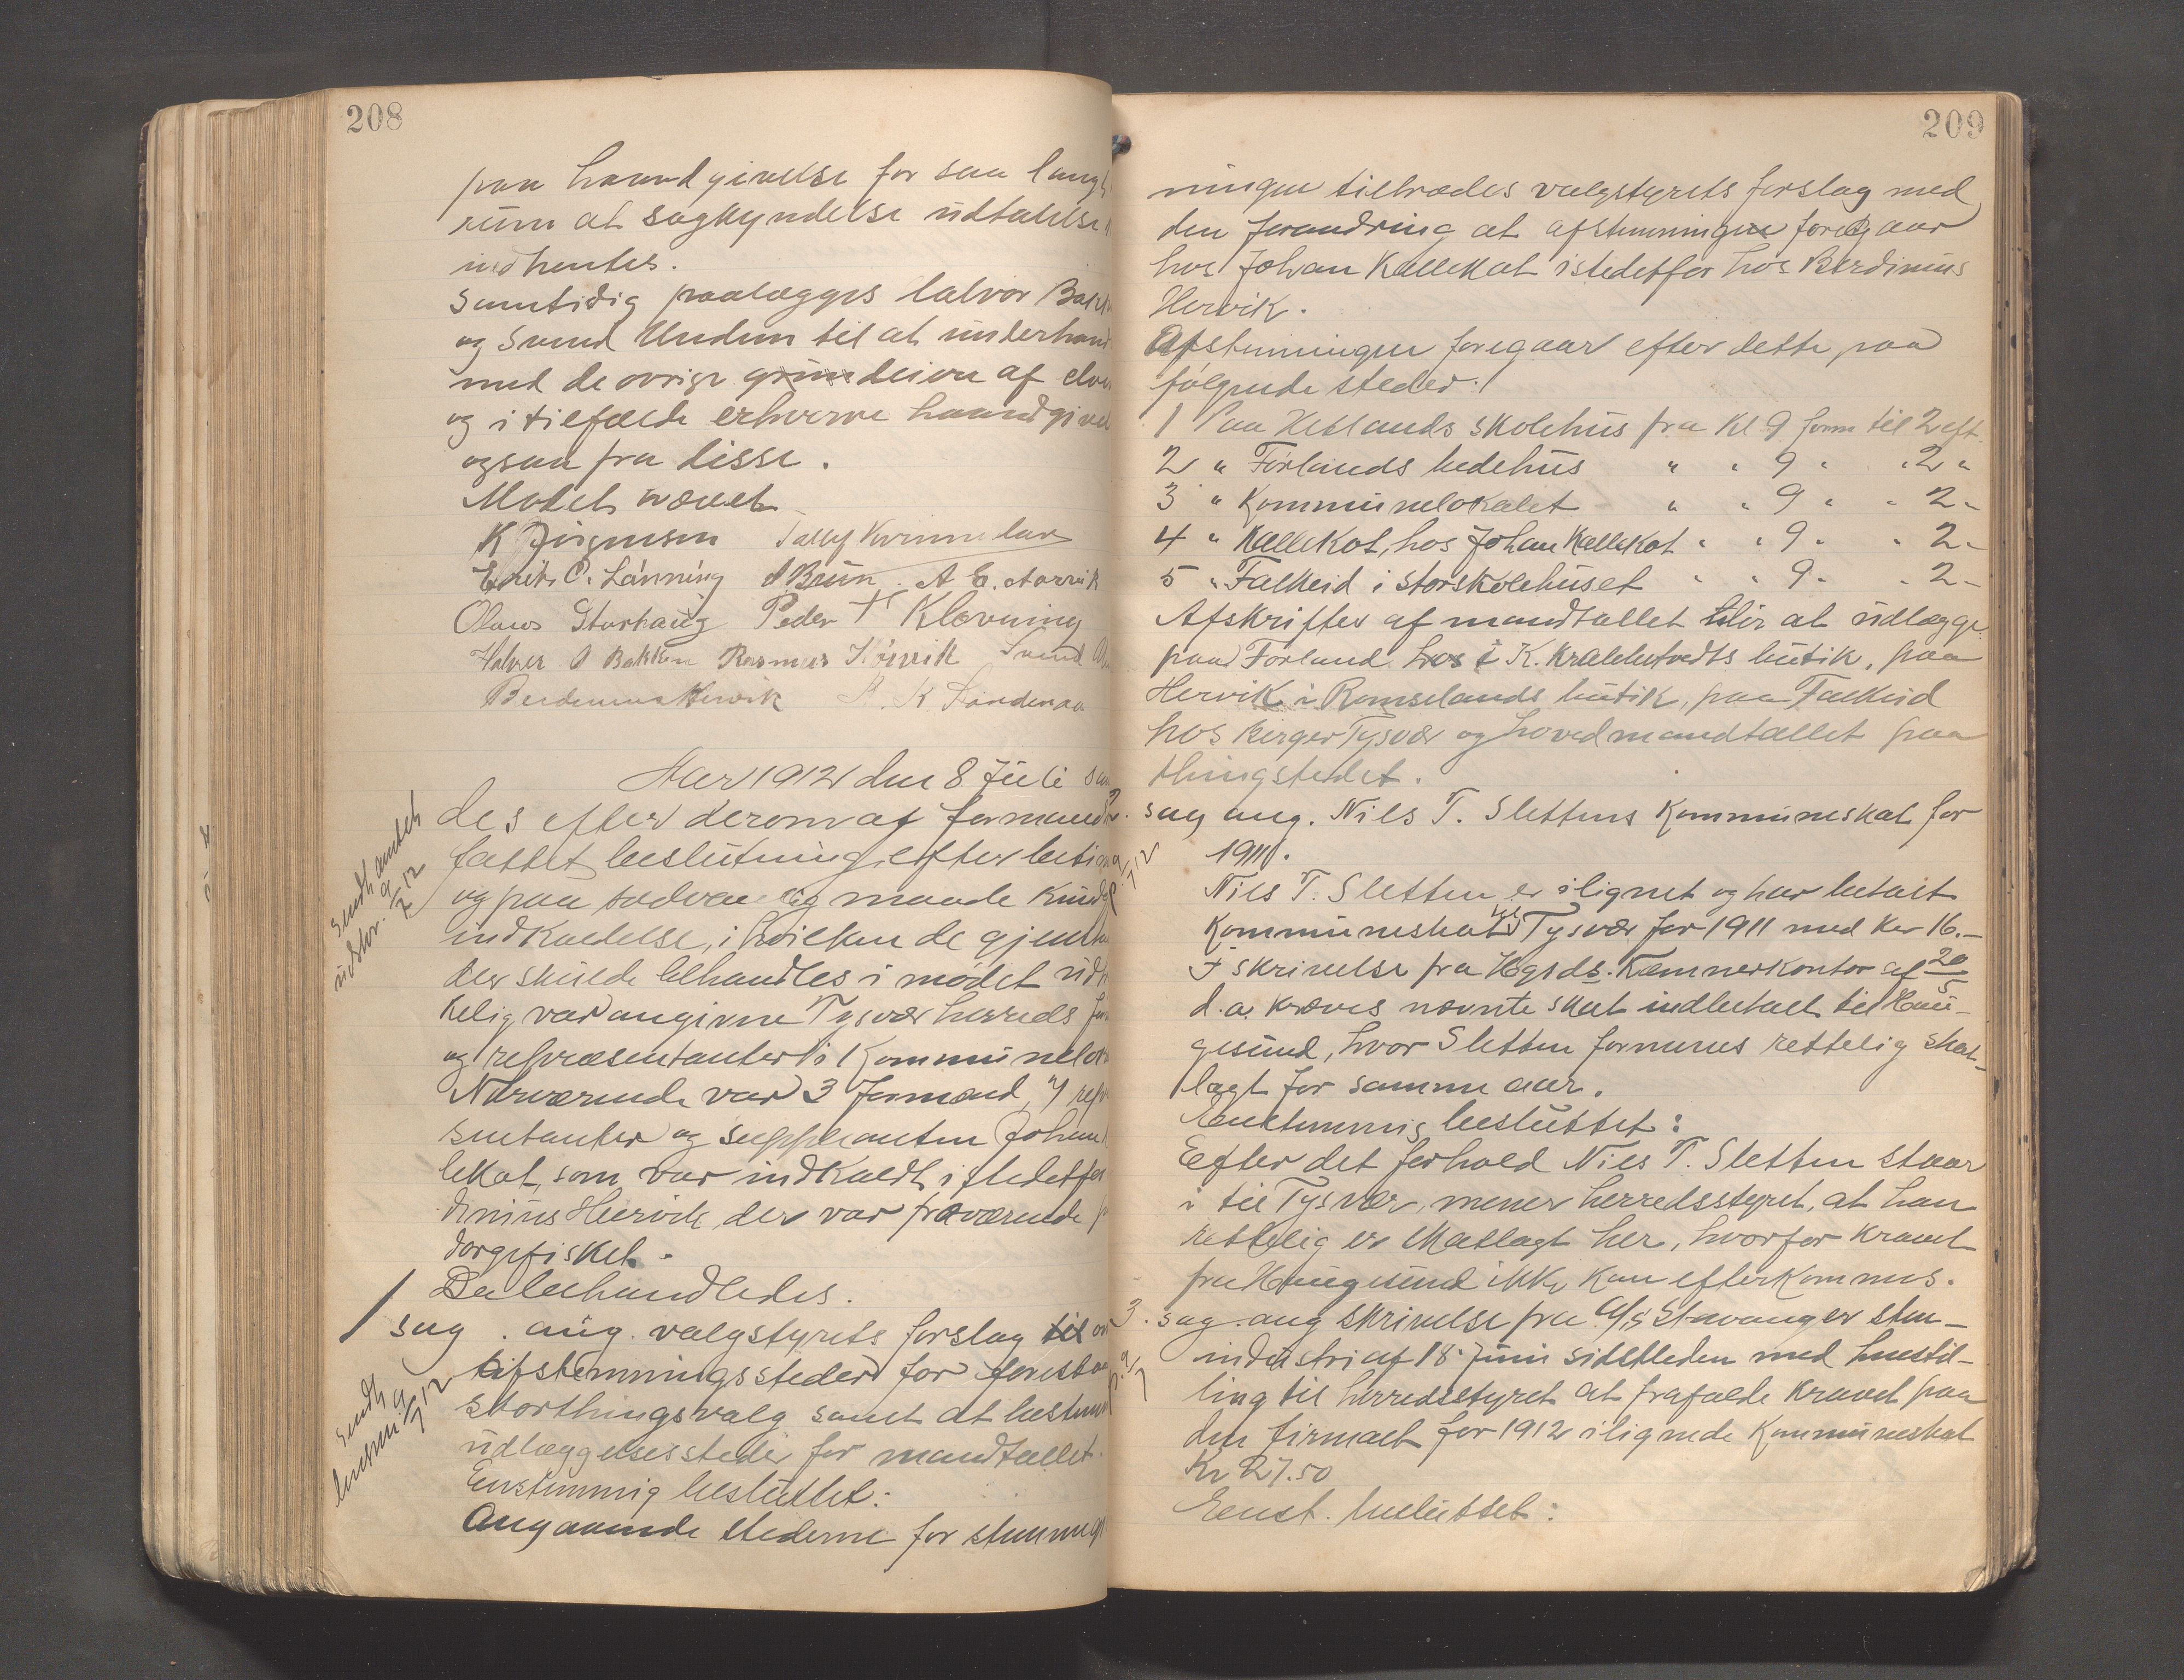 208
paa haandgivelse for saa langt
rum at sagkyndelse udtalelse
indhentes.
Samtidig paalægges Halvor Bakk
og Svend Undem til at underhand
med de øvrige grundeiere af elve
og i tilfælde erhverve haandgivel
ogsaa fra disse.
Mødet hævet
K Jørgensen
Endre C. Lanning A Brun. A E. Aarvik
Olaus Storhaug Peder T Kløvning
Halvor O Bakken Rasmus Hørvik Svend
Berdinius Hervik K Sandenaa
Aar 1912 den 8 Juli sam
des efter derom af formand
fattet beslutning efter betim
og paa sedvanlig maade kundg
indkaldelse, i hvilken de gjenst
der skulde behandles i mødet udt
kelig var angivne Tysvær herreds for
og repræsentanter i Kommunelok
Nærværende var 3 formænd, 7 repr
sentanter og suppleanten Johan
lekot, som var indkaldt istedetfor
dinius Hervik der var fraværende p
dorgefisket.
Da behandledes.
1 sag . ang. valgstyrets forslag til
afstemningssteder for forestaa
storthingsvalg samt at bestem
udlæggelsessteder for mandtallet.
Enstemmig besluttet:
Angaaende stederne for stemmegi
Sendt amtet
udskr. 9/7 12
Sendt
lensm. 9/7 12
209
ningen tiltrædes valgstyrets forslag med
den forandring at afstemningen foregaar
hos Johan Kallekot istedetfor hos Berdinius
Hervik.
Afstemningen foregaar efter dette paa
følgende steder:
1 Paa Hetlands skolehus fra Kl 9 form til 2 eft.
2 " Førlands bedehus " " 9 " " 2 "
3 " Kommunelokalet " " 9 " " 2 "
4 " Kallekot, hos Johan Kallekot " " 9 " " 2 "
5 " Falkeid i Storskolehuset " " 9 " " 2 "
Afskrifter af mandtallet blir at udlægge
paa Førland hos i K. Krakkutvedts butik, paa
Hervik i Romselands butik, paa Falkeid
hos Birger Tysvær og hovedmandtallet paa
thingstedet.
2. sag ang. Nils T. Slettens Kommuneskat for
1911.
Nils T. Sletten er ilignet og har betalt
Kommuneskat til Tysvær for 1911 med Kr 16.–
I skrivelse fra Hgsds. Kæmnerkontor af 20/5
d.a. kræves nævnte skat indbetalt til Hau-
gesund, hvor Sletten formenes rettelig skat-
lagt for samme aar.
Enstemmig besluttet:
Efter det forhold Nils T. Sletten staar
i til Tysvær, mener herredsstyret, at han
rettelig er skatlagt her, hvorfor kravet
fra Haugesund ikke kan efterkommes.
3. sag ang skrivelse fra A/S Stavanger sten-
industri af 18 Juni sidstleden med henstil-
ling til herredsstyret at frafalde kravet paa
den firmaet for 1912 ilignede Kommuneskat
Kr 27.50
Eenst. besluttet: